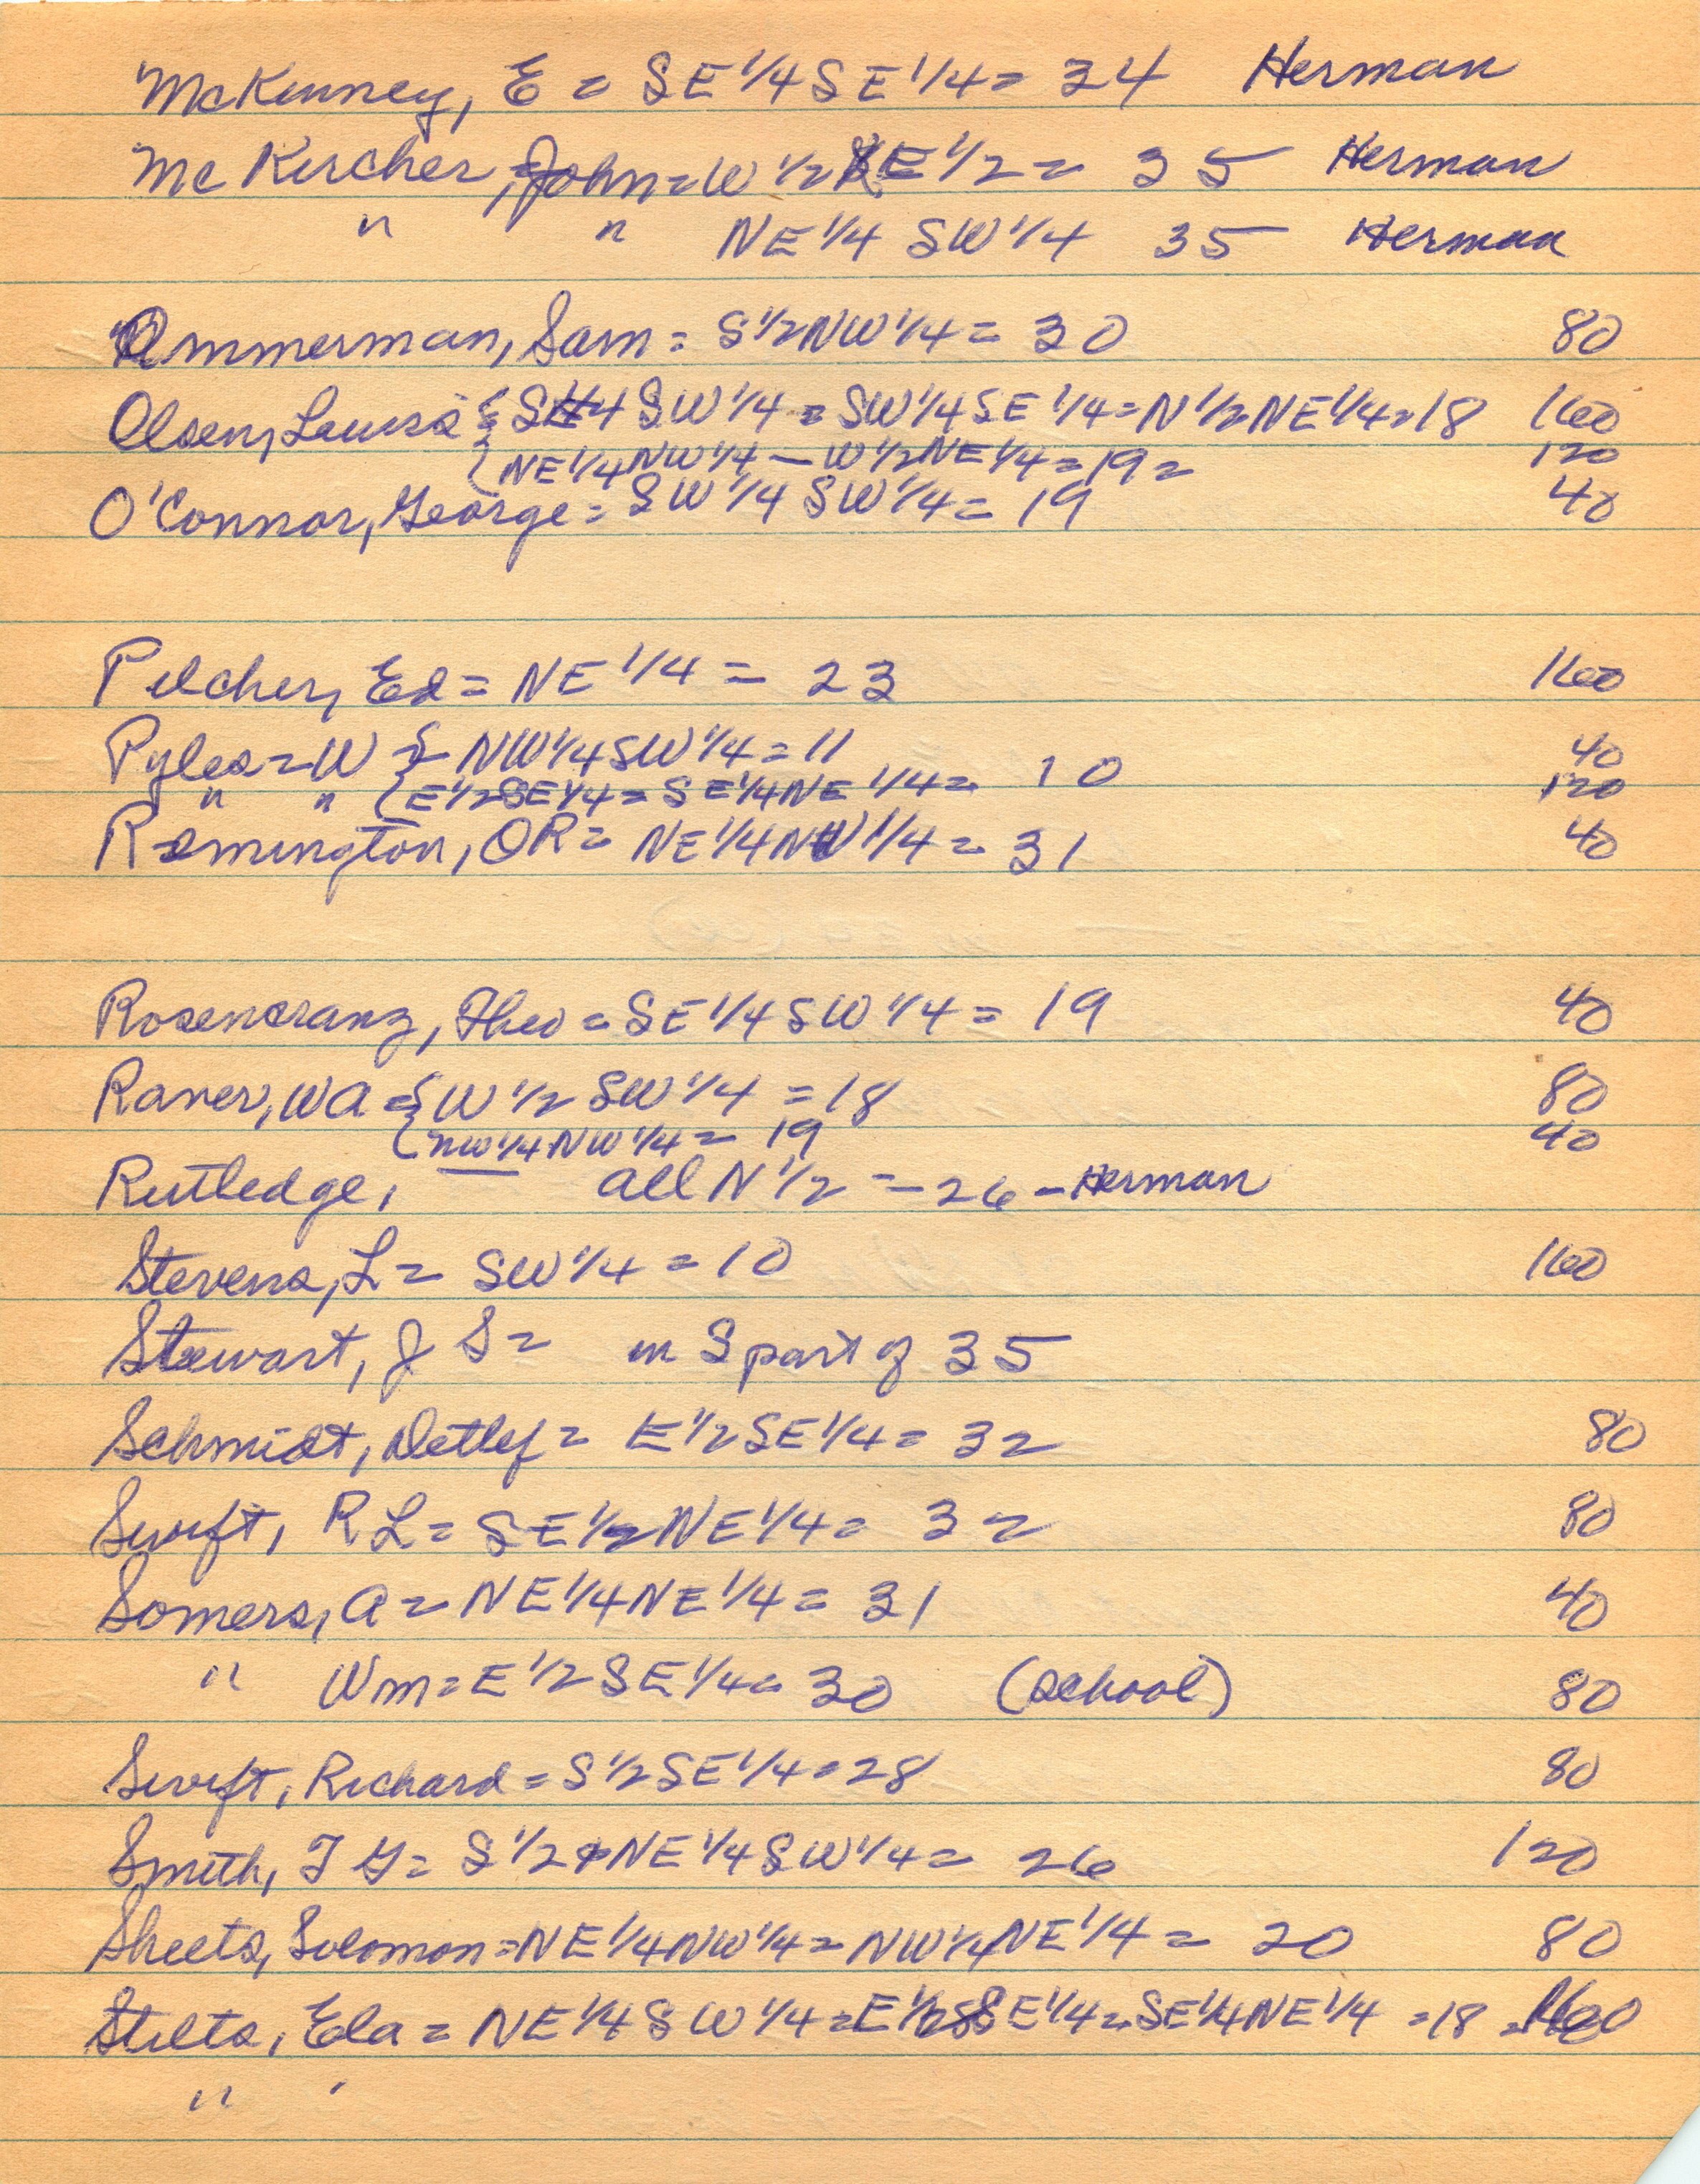 McKinney, E = SE 1/4 SE 1/4 = 34 Herman
McKircher, John = W 1/2 SE 1/2 = 35 Herman
" " NE 1/4 SW 1/4 35 Herman
Ommerman, Sam = S 1/2 NW 1/4 = 30 80
Olsen, Louis { SE 1/4 SW 1/4 = SW 1/4 SE 1/4 = N 1/2 NE 1/4 = 18 160
{ NE 1/4 NW 1/4 — W 1/2 NE 1/4 = 19 = 120
O'Connor, George = SW 1/4 SW 1/4 = 19 40
Pilcher, Ed = NE 1/4 = 23 160
Pyles = W { NW 1/4 SW 1/4 = 11 40
" " { E 1/2 SE 1/4 = SE 1/4 NE 1/4 = 10 120
Remington, OR = NE 1/4 NW 1/4 = 31 40
Rosencranz, Theo = SE 1/4 SW 1/4 = 19 40
Raver, WA = { W 1/2 SW 1/4 = 18 80
{ NW 1/4 NW 1/4 = 19 40
Rutledge, — all N 1/2 = – 26 – Herman
Stevens, L = SW 1/4 = 10 160
Stewart, J S = in S part of 35
Schmidt, Detlef = E 1/2 SE 1/4 = 32 80
Swift, R L = SE 1/2 NE 1/4 = 32 80
Somers, A = NE 1/4 NE 1/4 = 31 40
" Wm = E 1/2 SE 1/4 = 30 (school) 80
Swift, Richard = S 1/2 SE 1/4 = 28 80
Smith, T G = S 1/2 + NE 1/4 SW 1/4 = 26 120
Sheets, Solomon = NE 1/4 NW 1/4 = NW 1/4 NE 1/4 = 20 80
Stilts, Ela = NE 1/4 SW 1/4 = E 1/2 SE 1/4 = SE 1/4 NE 1/4 = 18 = 160
" '